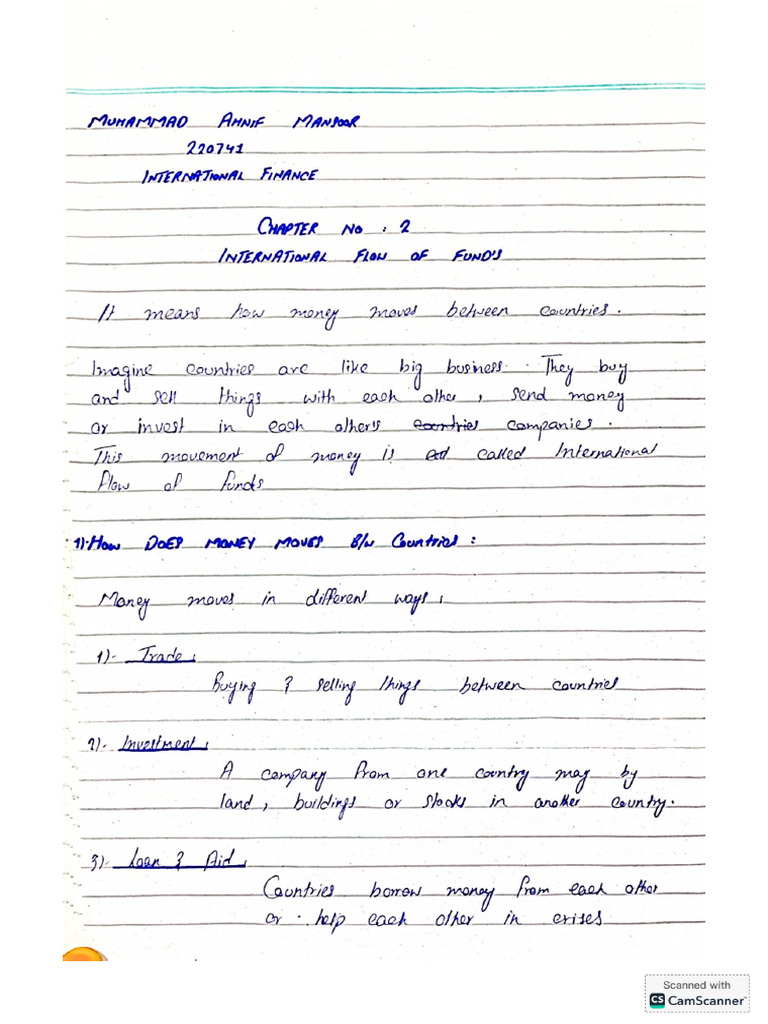 MUHAMMAD AHNIF MANSOOR
220741
INTERNATIONAL FINANCE
CHAPTER NO : 2
INTERNATIONAL FLOW OF FUND'S
It means how money moves between countries.
Imagine countries are like big business. They buy
and sell things with each other, send money
or invest in each other's countries companies.
This movement of money is called International
Flow of Funds
1) How DOES MONEY MOVES B/w Countries :
Money moves in different ways :
1)- Trade :
Buying & selling things between countries
2)- Investment :
A company from one country may by
land, buildings or stocks in another country.
3)- Loan & Aid :
Countries borrow money from each other
or help each other in crises
Scanned with
CS CamScanner